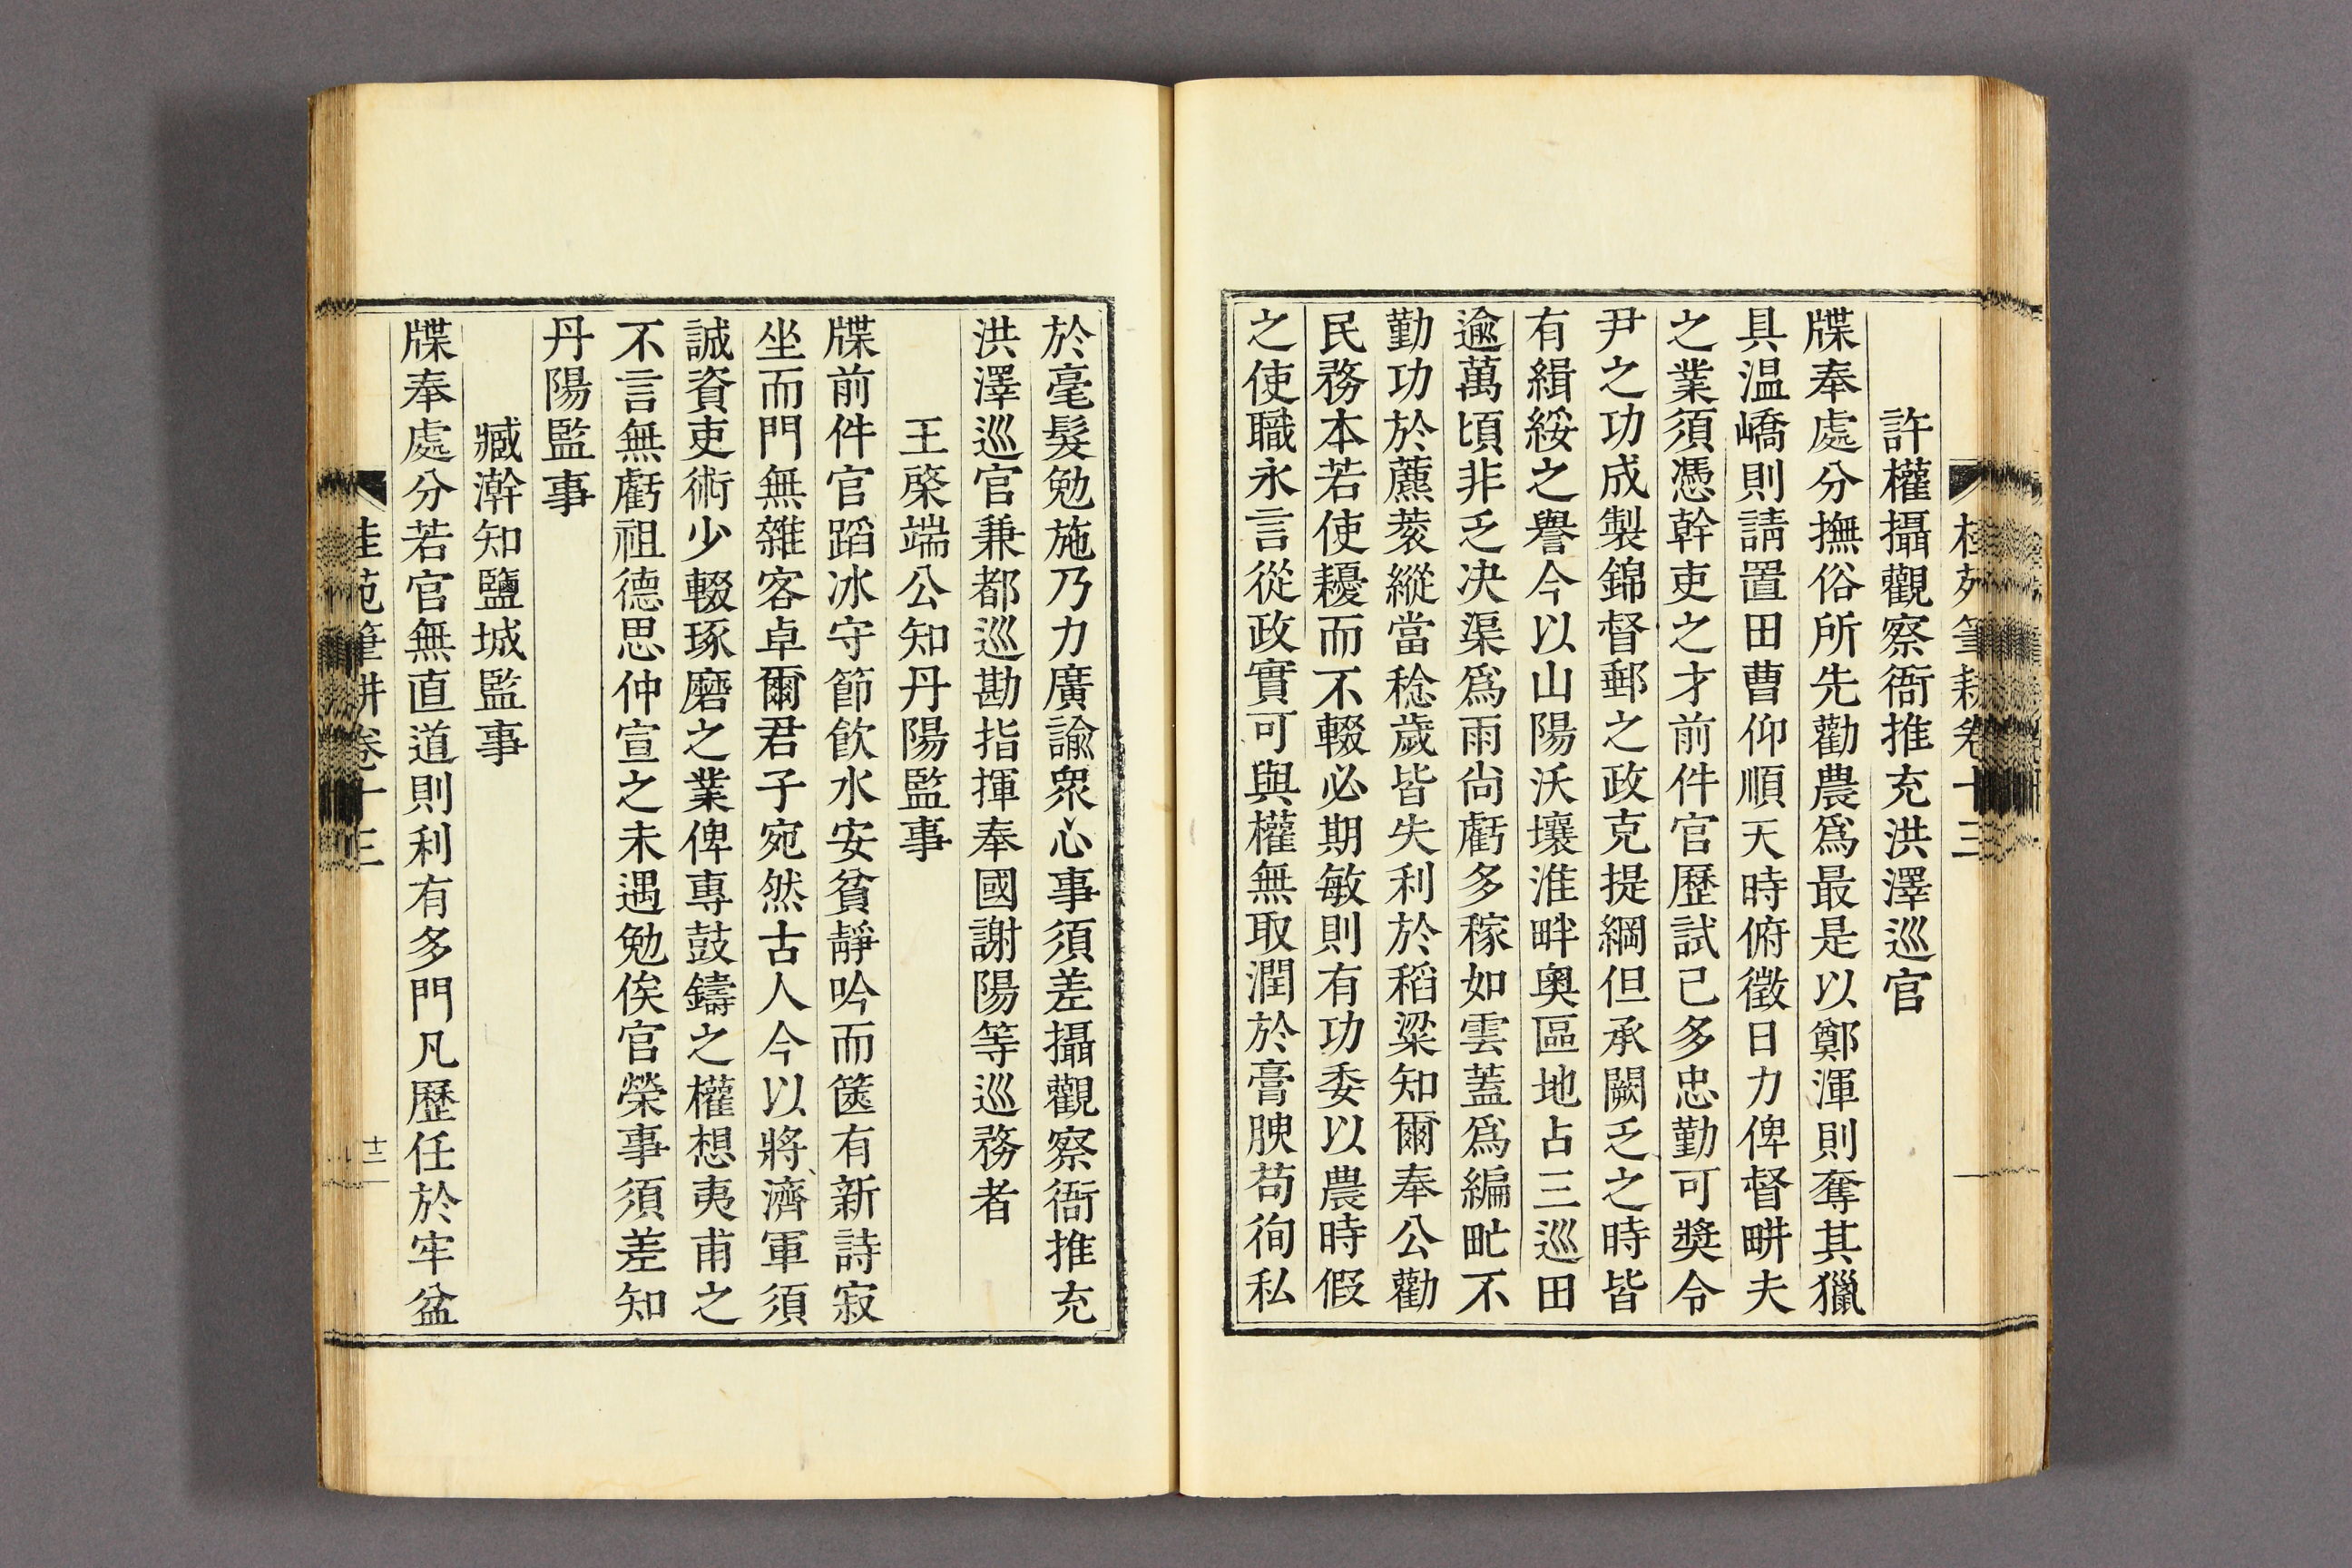 許權攝觀察衙推充洪澤巡官
牒奉處分撫俗所先勸農爲最是以鄭渾則奪其獵
具温嶠則請置田曹仰順天時俯徵日力俾督畊夫
之業須憑幹吏之才前件官歷試已多忠勤可奬令
尹之功成製錦督郵之政克提綱但承闕乏之時皆
有緝綏之譽今以山陽沃壤淮畔奥區地占三巡田
逾萬頃非乏決渠爲雨尙虧多稼如雲蓋爲編甿不
勤功於藨蔉縱當稔歲皆失利於稻粱知爾奉公勸
民務本若使耰而不輟必期敏則有功委以農時假
之使職永言從政實可與權無取潤於膏腴苟徇私
於毫髮勉施乃力廣諭衆心事須差攝觀察衙推充
洪澤巡官兼都巡勘指揮奉國謝陽等巡務者
王棨端公知丹陽監事
牒前件官蹈冰守節飲水安貧靜吟而篋有新詩寂
坐而門無雜客卓爾君子宛然古人今以將濟軍須
誠資吏術少輟琢磨之業俾專鼓鑄之權想夷甫之
不言無虧祖德思仲宣之未遇勉俟官榮事須差知
丹陽監事
臧澣知鹽城監事
牒奉處分若官無直道則利有多門凡歷任於牢盆
桂苑筆耕卷十三
十二